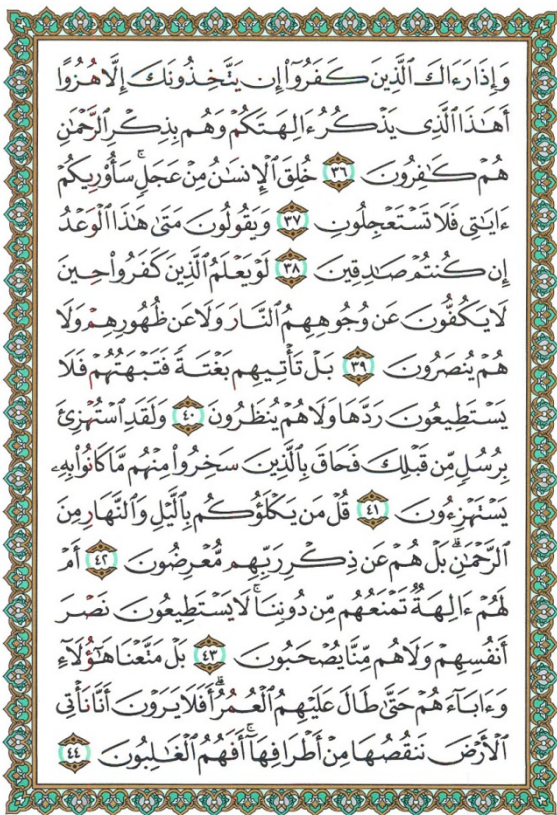 وَإِذَا رَءَاكَ ٱلَّذِينَ كَفَرُوٓا۟ إِن يَتَّخِذُونَكَ إِلَّا هُزُوًا
أَهَٰذَا ٱلَّذِى يَذْكُرُ ءَالِهَتَكُمْ وَهُم بِذِكْرِ ٱلرَّحْمَٰنِ
هُمْ كَٰفِرُونَ ٣٦ خُلِقَ ٱلْإِنسَٰنُ مِنْ عَجَلٍ ۚ سَأُو۟رِيكُمْ
ءَايَٰتِى فَلَا تَسْتَعْجِلُونِ ٣٧ وَيَقُولُونَ مَتَىٰ هَٰذَا ٱلْوَعْدُ
إِن كُنتُمْ صَٰدِقِينَ ٣٨ لَوْ يَعْلَمُ ٱلَّذِينَ كَفَرُوا۟ حِينَ
لَا يَكُفُّونَ عَن وُجُوهِهِمُ ٱلنَّارَ وَلَا عَن ظُهُورِهِمْ وَلَا
هُمْ يُنصَرُونَ ٣٩ بَلْ تَأْتِيهِم بَغْتَةً فَتَبْهَتُهُمْ فَلَا
يَسْتَطِيعُونَ رَدَّهَا وَلَا هُمْ يُنظَرُونَ ٤٠ وَلَقَدِ ٱسْتُهْزِئَ
بِرُسُلٍ مِّن قَبْلِكَ فَحَاقَ بِٱلَّذِينَ سَخِرُوا۟ مِنْهُم مَّا كَانُوا۟ بِهِۦ
يَسْتَهْزِءُونَ ٤١ قُلْ مَن يَكْلَؤُكُم بِٱلَّيْلِ وَٱلنَّهَارِ مِنَ
ٱلرَّحْمَٰنِ ۗ بَلْ هُمْ عَن ذِكْرِ رَبِّهِم مُّعْرِضُونَ ٤٢ أَمْ
لَهُمْ ءَالِهَةٌ تَمْنَعُهُم مِّن دُونِنَا ۚ لَا يَسْتَطِيعُونَ نَصْرَ
أَنفُسِهِمْ وَلَا هُم مِّنَّا يُصْحَبُونَ ٤٣ بَلْ مَتَّعْنَا هَٰٓؤُلَآءِ
وَءَابَآءَهُمْ حَتَّىٰ طَالَ عَلَيْهِمُ ٱلْعُمُرُ ۗ أَفَلَا يَرَوْنَ أَنَّا نَأْتِى
ٱلْأَرْضَ نَنقُصُهَا مِنْ أَطْرَافِهَآ ۚ أَفَهُمُ ٱلْغَٰلِبُونَ ٤٤